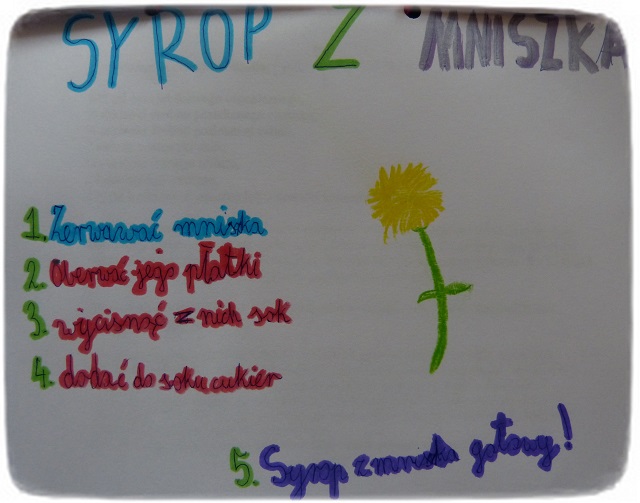 SYROP Z MNISZKA
1. Zerwawać mniszka
2. Oberwać jego płatki
3. wycisnąć z nich sok
4. dodać do soku cukier
5. Syrop z mniszka gotowy!